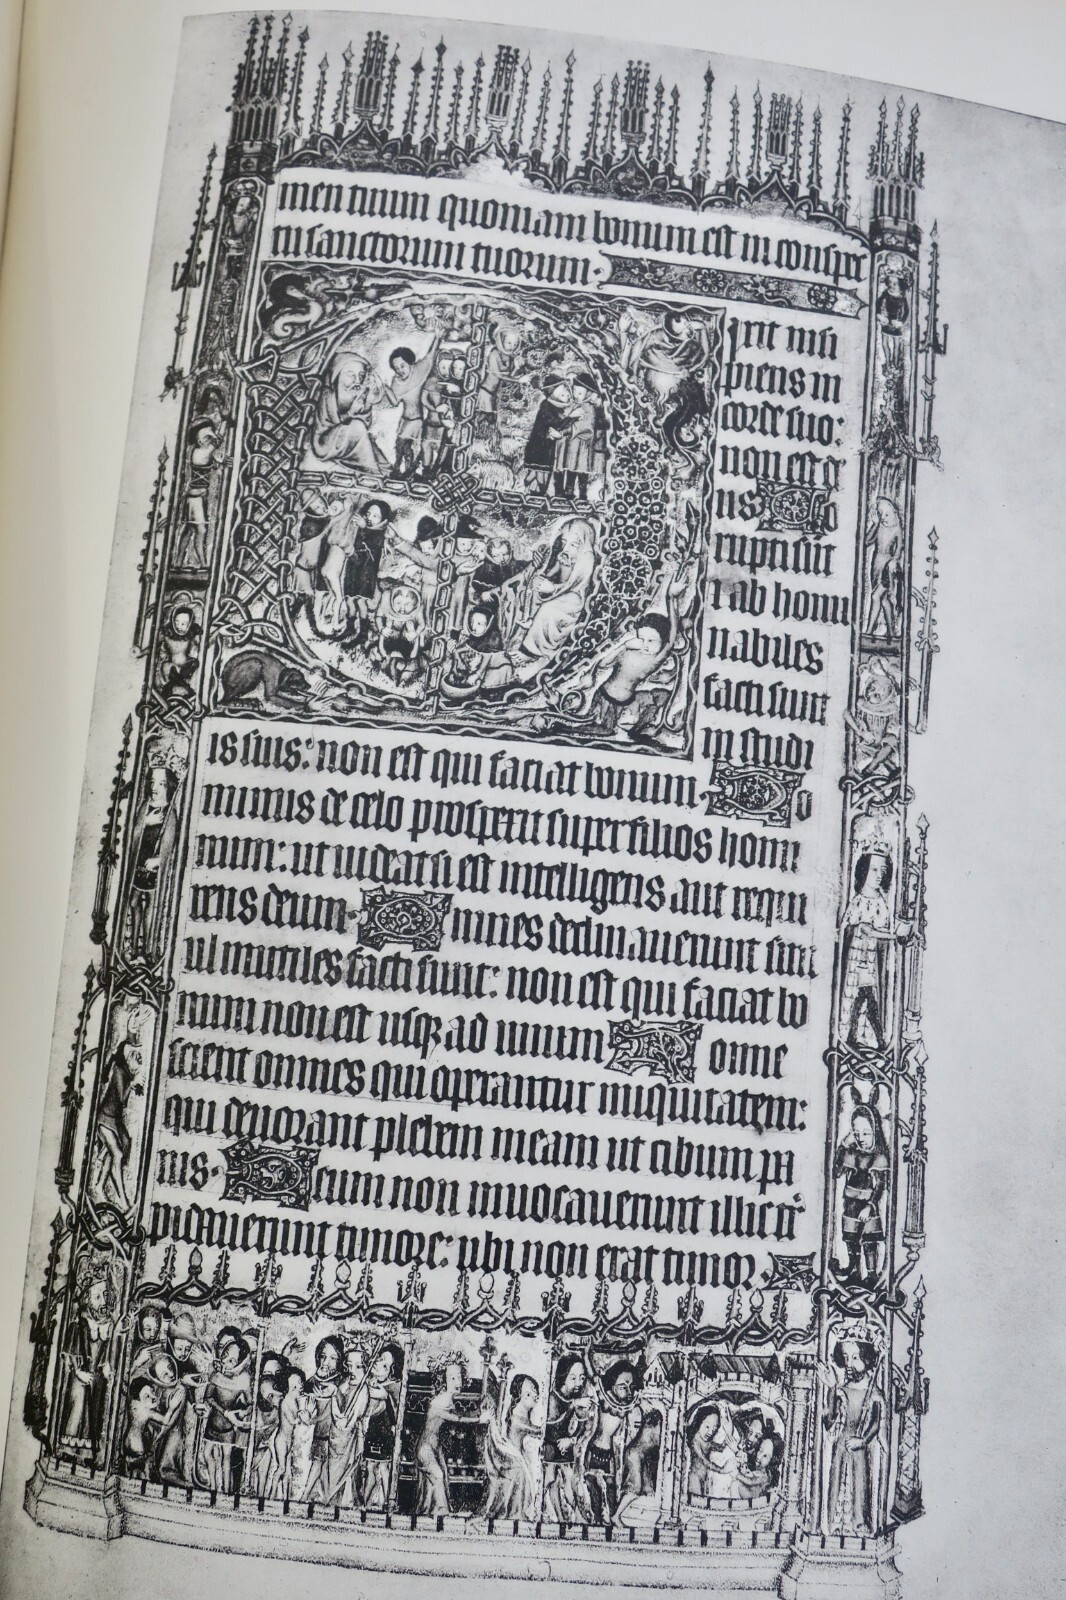 men tuum quoniam bonum est in conspec
tu sanctorum tuorum.
Dixit insi
piens in
corde suo:
non est de
us Co
rupti sūt
⁊ ab homi
nabiles
facti sunt
in studi
is suis: non est qui faciat bonum. Do
minus de celo prospexit super filios homi
num: ut uideat si est intelligens aut requi
rens deum. Omnes declinauerunt sim
ul inutiles facti sunt: non est qui faciat bo
num non est usqꝫ ad unum Nonne
scient omnes qui operantur iniquitatem:
qui deuorant plebem meam ut cibum pa
nis. Deum non inuocauerunt illic tr
pidauerunt timore: ubi non erat timor.